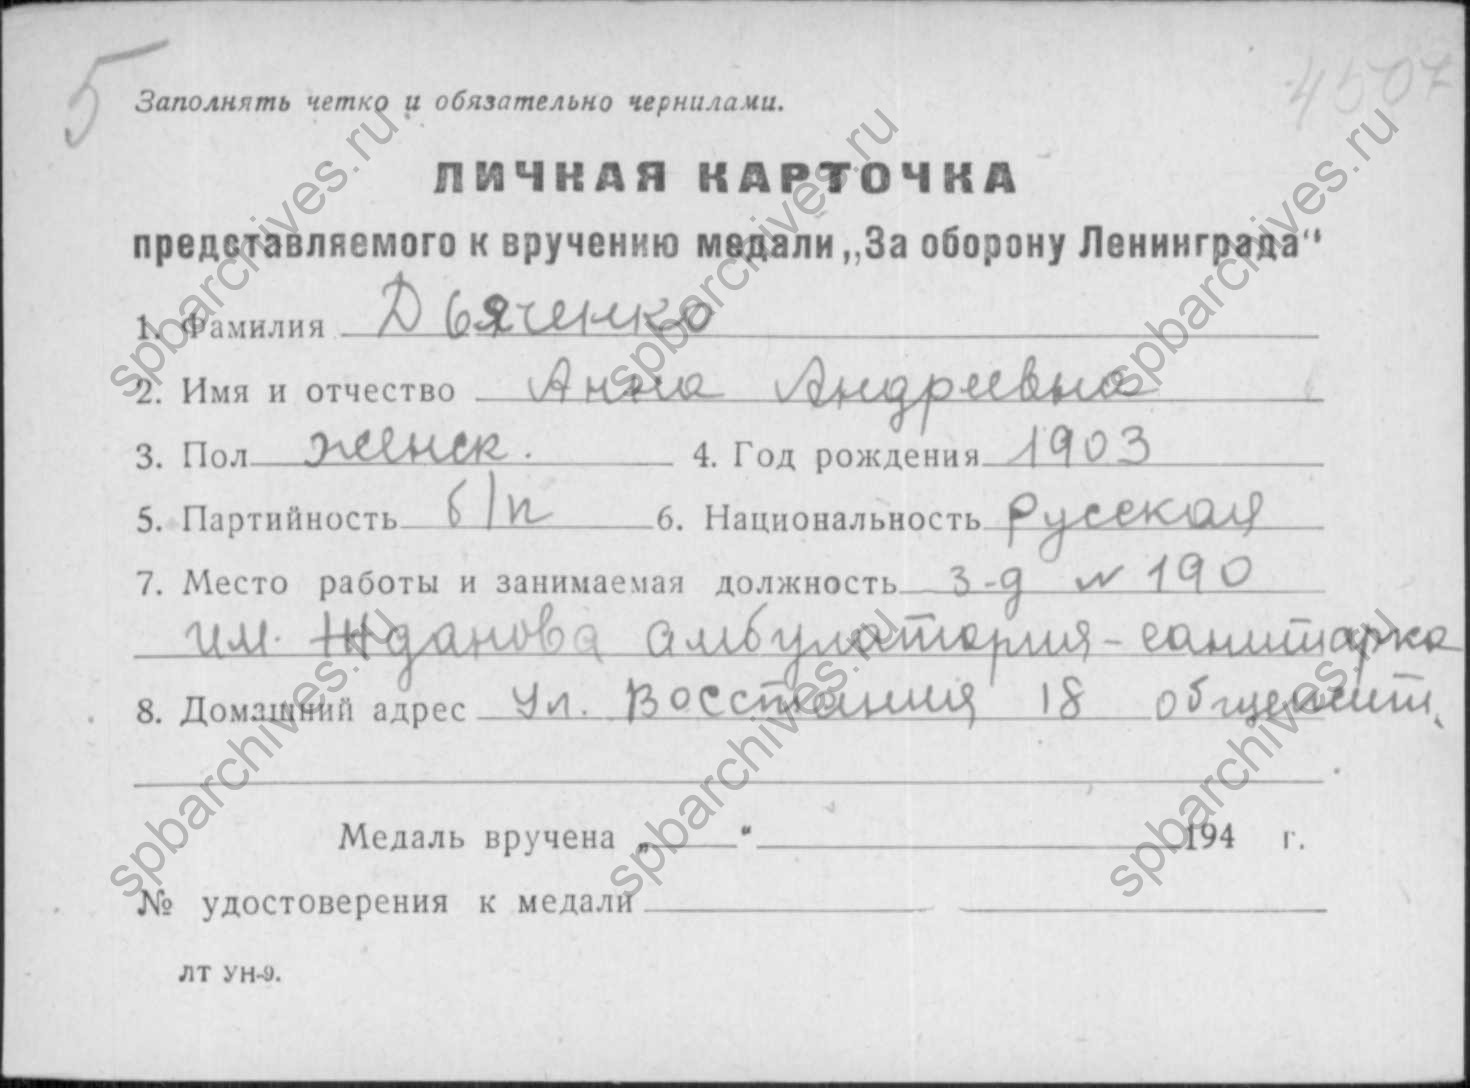 5 4507
Заполнять четко и обязательно чернилами.
ЛИЧНАЯ КАРТОЧКА
представляемого к вручению медали „За оборону Ленинграда“
1. Фамилия Дьяченко
2. Имя и отчество Анна Андреевна
3. Пол женск. 4. Год рождения 1903
5. Партийность б/п 6. Национальность русская
7. Место работы и занимаемая должность з-д № 190
им. Жданова амбулатория - санитарка
8. Домашний адрес ул. Восстания 18 общежит.
Медаль вручена „ “ 194 г.
№ удостоверения к медали
ЛТ УН-9.
spbarchives.ru
spbarchives.ru
spbarchives.ru
spbarchives.ru
spbarchives.ru
spbarchives.ru